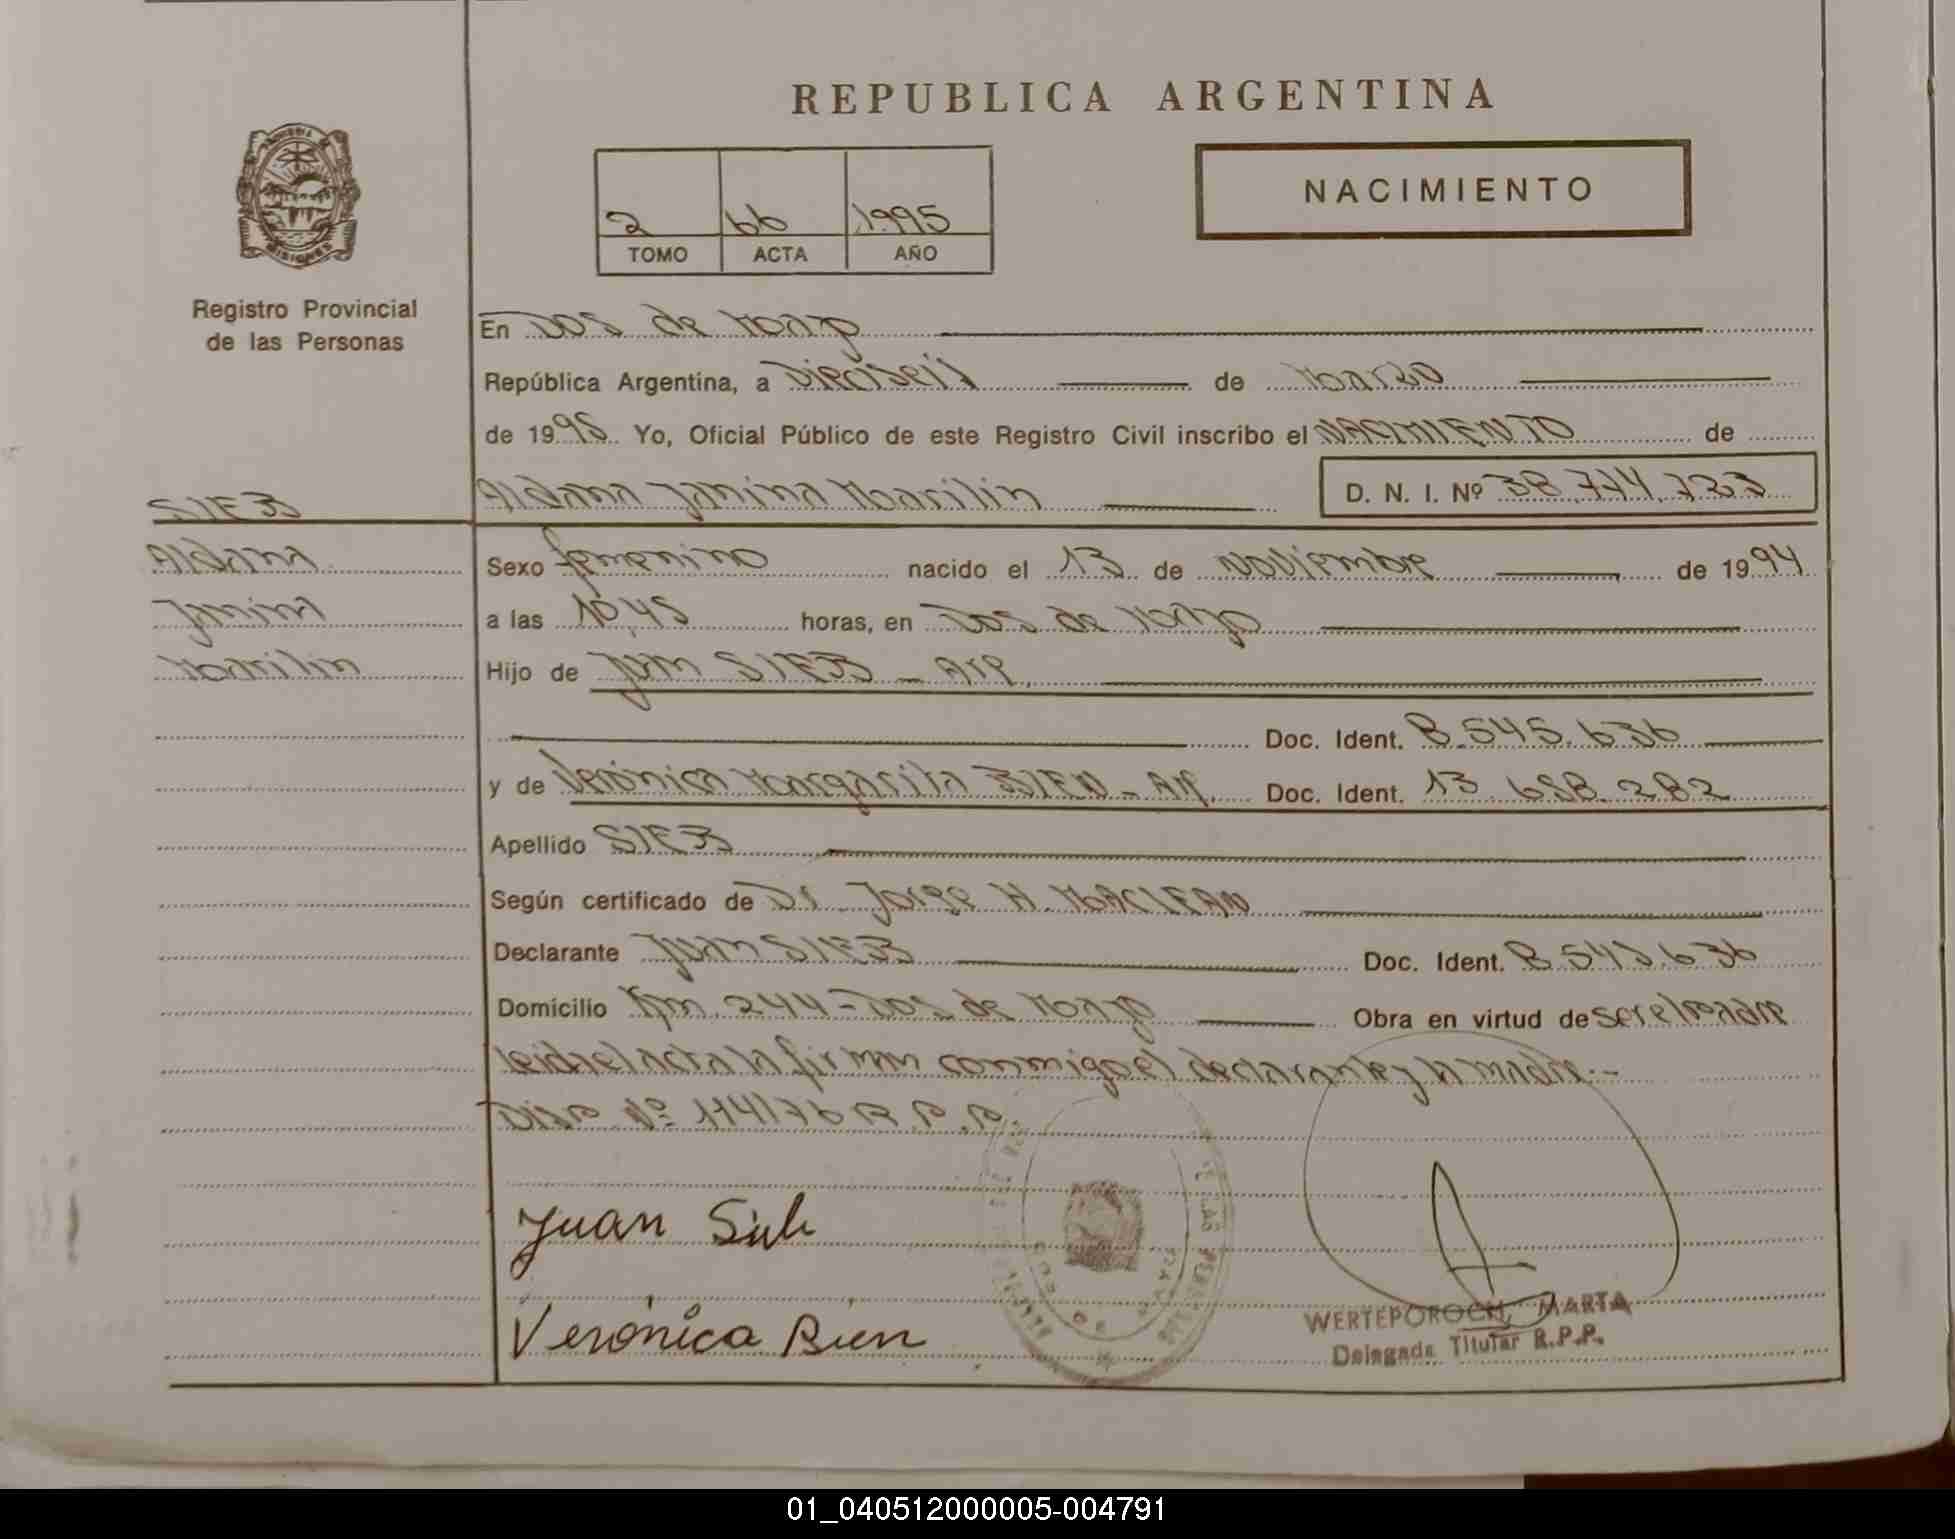 REPUBLICA ARGENTINA
MISIONES
2 66 1995
TOMO ACTA AÑO
NACIMIENTO
Registro Provincial
de las Personas
En Dos de Mayo
República Argentina, a Dieciseis de Marzo
de 1995 Yo, Oficial Público de este Registro Civil inscribo el NACIMIENTO de
SIEB
Aldana Janina Marilin D. N. I. Nº 38.774.723
Aldana
Janina
Marilin
Sexo femenino nacido el 13 de Noviembre de 1994
a las 10,45 horas, en Dos de Mayo
Hijo de Juan SIEB - Arg.
Doc. Ident. 8.545.636
y de Verónica Margarita BIEN - Arg. Doc. Ident. 13.658.282
Apellido SIEB
Según certificado de Dr. Jorge H. MACLEAN
Declarante Juan SIEB Doc. Ident. 8.545.636
Domicilio Km. 244 - Dos de Mayo Obra en virtud de ser el padre
leida el acta la firman conmigo el declarante y la madre.-
Disp. Nº 114/76 R.P.P.
Juan Sieb
Verónica Bien
WERTEPOROCH, MARTA
Delegada Titular R.P.P.
01_040512000005-004791